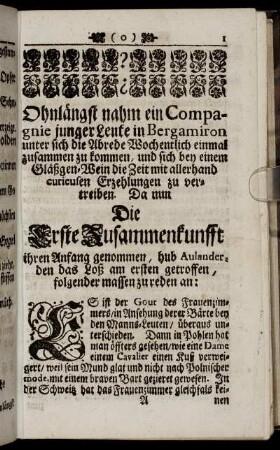 ( o ) 1
Ohnlängst nahm ein Compa-
gnie junger Leute in Bergamiron
unter sich die Abrede Wochentlich einmal
zusammen zu kommen, und sich bey einem
Gläßgen-Wein die Zeit mit allerhand
curieusen Erzehlungen zu ver-
treiben. Da nun
Die
Erste Zusammenkunfft
ihren Anfang genommen, hub Aulander,
den das Loß am ersten getroffen,
folgender massen zu reden an:
ES ist der Gout des Frauenzim-
mers, in Ansehung derer Bärte bey
den Manns-Leuten, überaus un-
terschieden. Dann in Pohlen hat
man öffters gesehen, wie eine Dame
einem Cavalier einen Kuß verwei-
gert, weil sein Mund glat und nicht nach Polnischer
mode, mit einem braven Bart gezieret gewesen. In
der Schweitz hat das Frauenzimmer gleichfals kei-
A nen